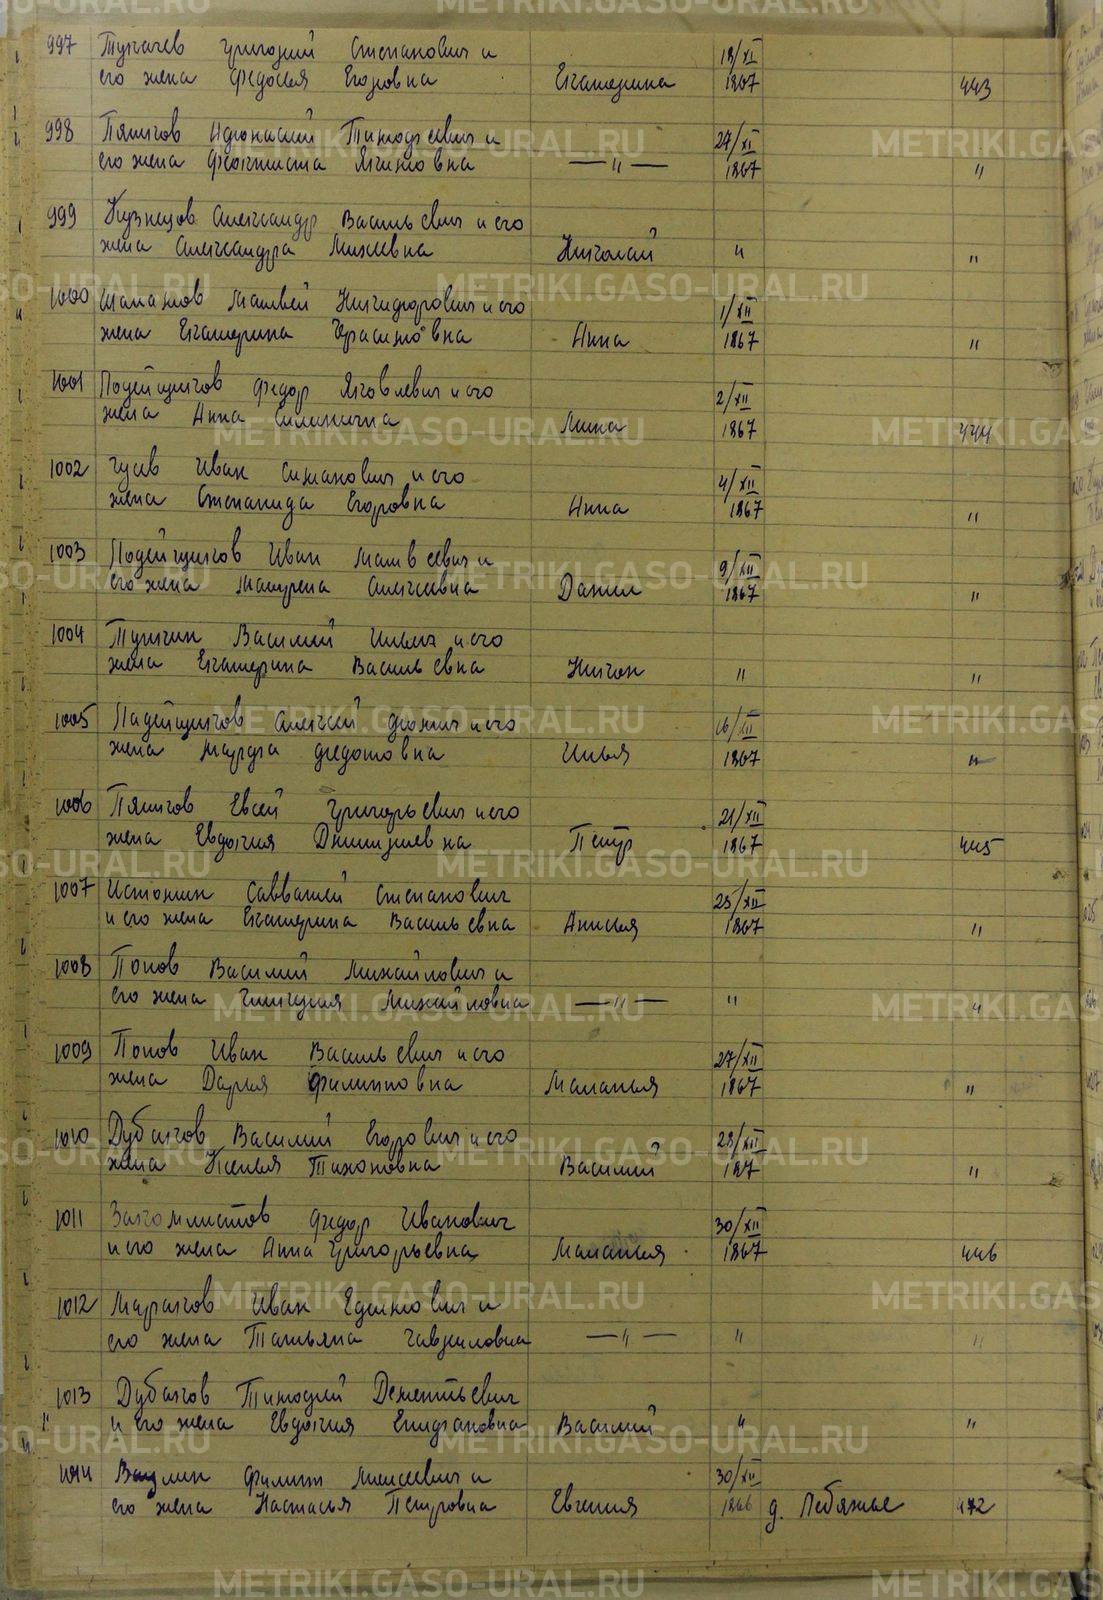 997 Тукачев Григорий Степанович и 18/XI
его жена Федосья Егоровна Екатерина 1867 443
998 Пятков Афонасий Тимофеевич и 24/XI
его жена Феоктиста Якимовна —"— 1867 "
999 Кузнецов Александр Васильевич и его
жена Александра Михеевна Николай " "
1000 Матвей Никифорович и его 1/XII
жена Екатерина Герасимовна Анна 1867 "
1001 Подейщиков Федор Яковлевич и его 2/XII
жена Анна Мина 1867 444
1002 Гусев Иван Симанович и его 4/XII
жена Степанида Егоровна Анна 1867 "
1003 Подейщиков Иван Матвеевич и 9/XII
его жена Матрена Алексеевна Данил 1867 "
1004 Василий Ильич и его
жена Екатерина Васильевна Никон " "
1005 Падейщиков Алексей Фомич и его 16/XII
жена Марфа Федотовна Илья 1867 "
1006 Пятков Евсей Григорьевич и его 21/XII
жена Евдокия Дмитриевна Петр 1867 445
1007 Истомин Савватей Степанович 25/XII
и его жена Екатерина Васильевна Анисья 1867 "
1008 Попов Василий Михайлович и
его жена Гликерия Михайловна —"— " "
1009 Попов Иван Васильевич и его 27/XII
жена Дарья Филипповна Маланья 1867 "
1010 Дубаков Василий Егорович и его 28/XII
жена Ксенья Тихоновна Василий 187 "
1011 Федор Иванович 30/XII
и его жена Анна Григорьевна Маланья 1867 446
1012 Мараков Иван Ефимович и
его жена Татьяна Гавриловна —"— " "
1013 Дубаков Тимофей Дементьевич
и его жена Евдокия Епифановна Василий " "
1014 Филипп Моисеевич и 30/XII
его жена Настасья Петровна Евгения 1866 д. Лебяжье 472
METRIKI.GASO-URAL.RU